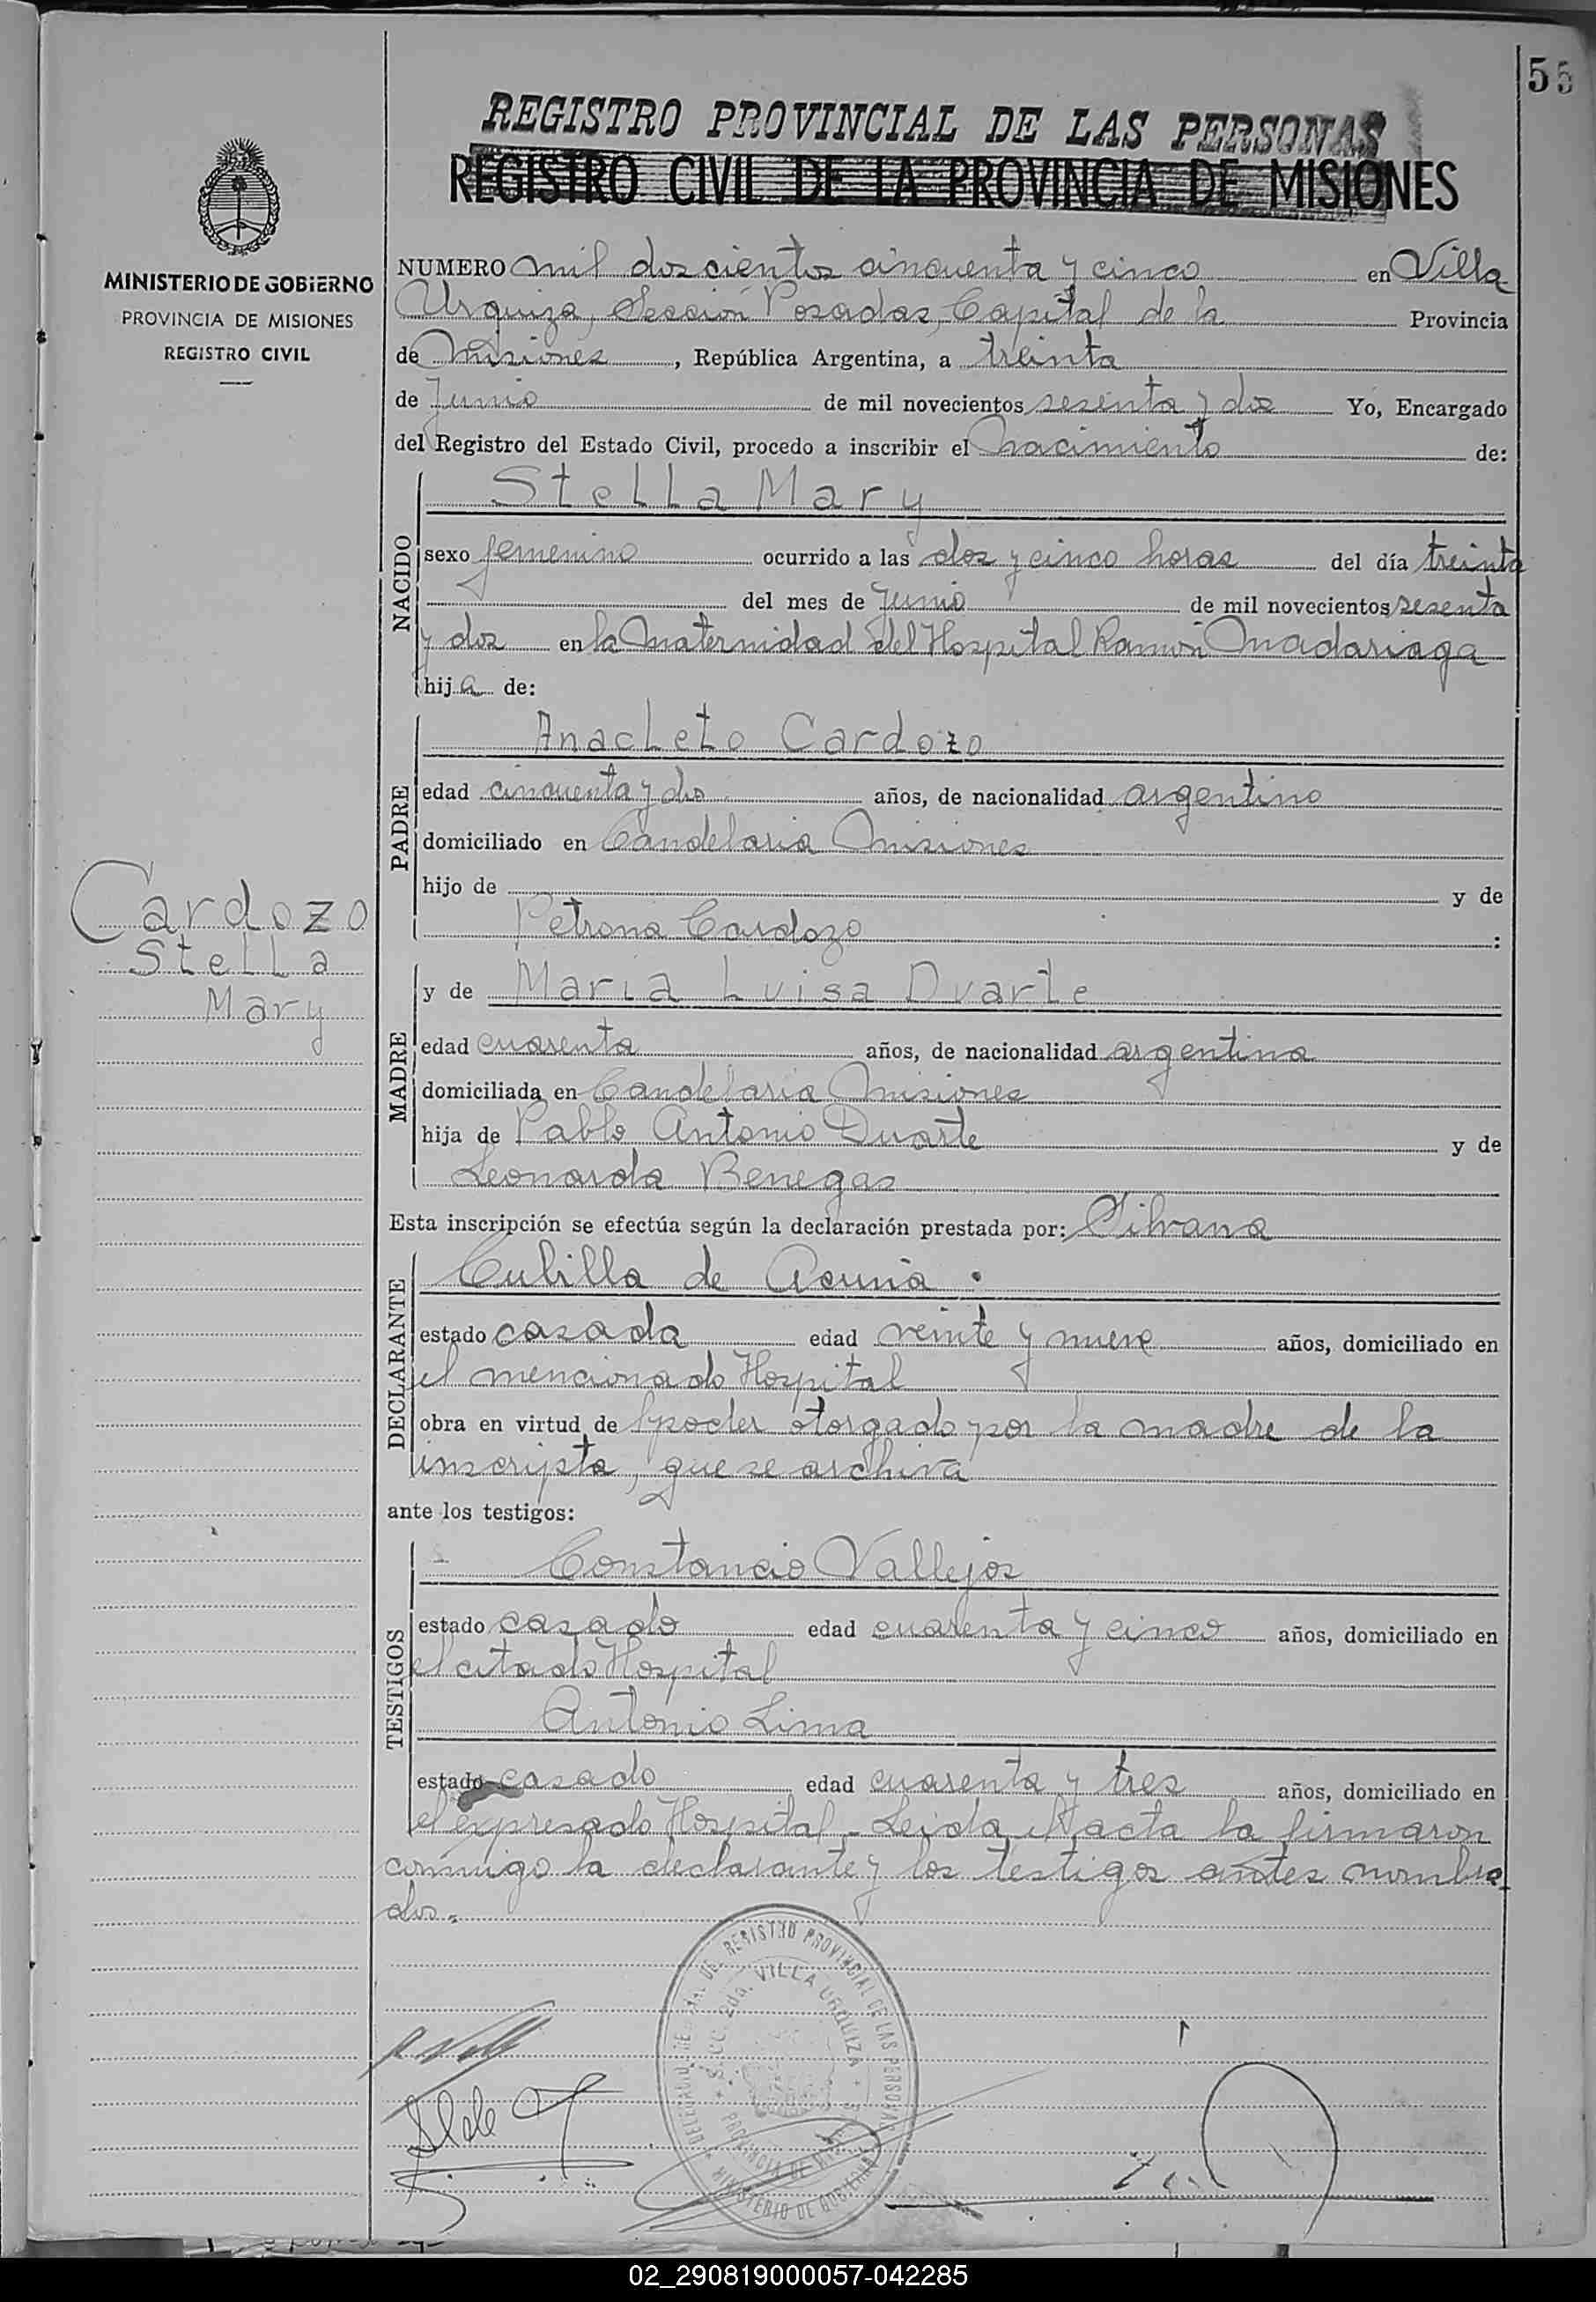 55
REGISTRO PROVINCIAL DE LAS PERSONAS
REGISTRO CIVIL DE LA PROVINCIA DE MISIONES
MINISTERIO DE GOBIERNO
PROVINCIA DE MISIONES
REGISTRO CIVIL
NUMERO mil doscientos cincuenta y cinco en Villa
Urquiza, Sección Posadas, Capital de la Provincia
de Misiones, República Argentina, a treinta
de Junio de mil novecientos sesenta y dos Yo, Encargado
del Registro del Estado Civil, procedo a inscribir el nacimiento de:
NACIDO
Stella Mary
sexo femenino ocurrido a las dos y cinco horas del día treinta
del mes de Junio de mil novecientos sesenta
y dos en la Maternidad del Hospital Ramón Madariaga
hija de:
PADRE
Anacleto Cardozo
edad cincuenta y dos años, de nacionalidad argentino
domiciliado en Candelaria Misiones
hijo de y de
Petrona Cardozo :
Cardozo
Stella
Mary
MADRE
y de Maria Luisa Duarte
edad cuarenta años, de nacionalidad argentina
domiciliada en Candelaria Misiones
hija de Pablo Antonio Duarte y de
Leonarda Benegas
Esta inscripción se efectúa según la declaración prestada por: Silvana
DECLARANTE
Cubilla de Acuña.
estado casada edad veinte y nueve años, domiciliado en
el mencionado Hospital
obra en virtud de poder otorgado por la madre de la
inscripta, que se archiva
ante los testigos:
TESTIGOS
Constancio Vallejos
estado casado edad cuarenta y cinco años, domiciliado en
el citado Hospital
Antonio Lima
estado casado edad cuarenta y tres años, domiciliado en
el expresado Hospital - Leida el acta la firmaron
conmigo la declarante y los testigos antes nombra
dos.-
REGISTRO PROVINCIAL DE LAS PERSONAS
Secc. 2da. VILLA URQUIZA
PROVINCIA DE MISIONES
MINISTERIO DE GOBIERNO
02_290819000057-042285